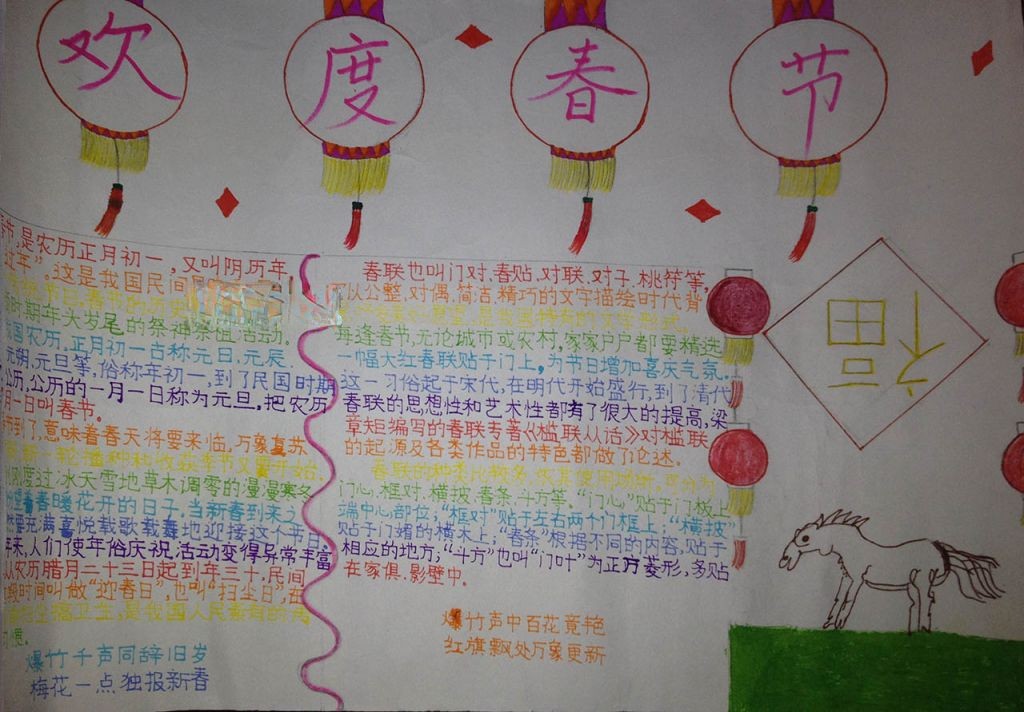 欢度春节
春节,是农历正月初一,又叫阴历年,
过年”。这是我国民间
节日。春节的历史
时期年头岁尾的祭神祭祖活动。
我国农历,正月初一古称元日、元辰、
元朔、元旦等,俗称年初一,到了民国时期
公历,公历的一月一日称为元旦,把农历
月一日叫春节。
节到了,意味着春天将要来临,万象复苏
新一轮播种和收获季节又要开始。
刚度过冰天雪地草木调零的漫漫寒冬
望着春暖花开的日子,当新春到来之
充满喜悦载歌载舞地迎接这个节日。
年来,人们使年俗庆祝活动变得异常丰富
从农历腊月二十三日起到年三十,民间
段时间叫做“迎春日”,也叫“扫尘日”,在
搞卫生,是我国人民素有的
习惯。
爆竹千声同辞旧岁
梅花一点独报新春
春联也叫门对、春贴、对联、对子、桃符等,
以公整、对偶、简洁、精巧的文字描绘时代背
是我国特有的文学形式。
每逢春节,无论城市或农村,家家户户都要精选
一幅大红春联贴于门上,为节日增加喜庆气氛。
这一习俗起于宋代,在明代开始盛行,到了清代
春联的思想性和艺术性都有了很大的提高,梁
章矩编写的春联专著《槛联从话》对槛联
的起源及各类作品的特色都做了论述。
春联的种类比较多,依其使用场所,可分为
门心、框对、横披、春条、斗方等。“门心”贴于门板上
端中心部位;“框对”贴于左右两个门框上;“横披”
贴于门媚的横木上;“春条”根据不同的内容,贴于
相应的地方;“斗方”也叫“门叶”为正方菱形,多贴
在家俱、影壁中。
爆竹声中百花竟艳
红旗飘处万象更新
福